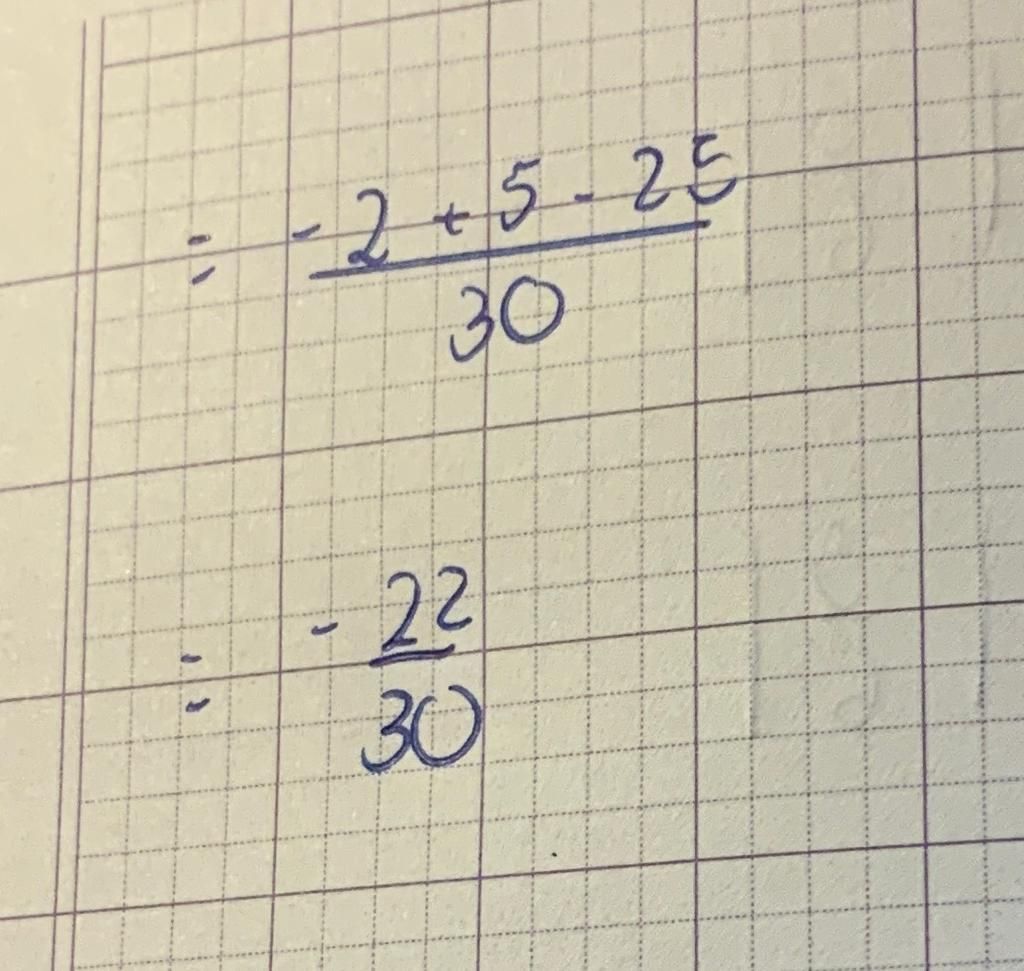 = -2 + 5 - 25
30
= - 22
30